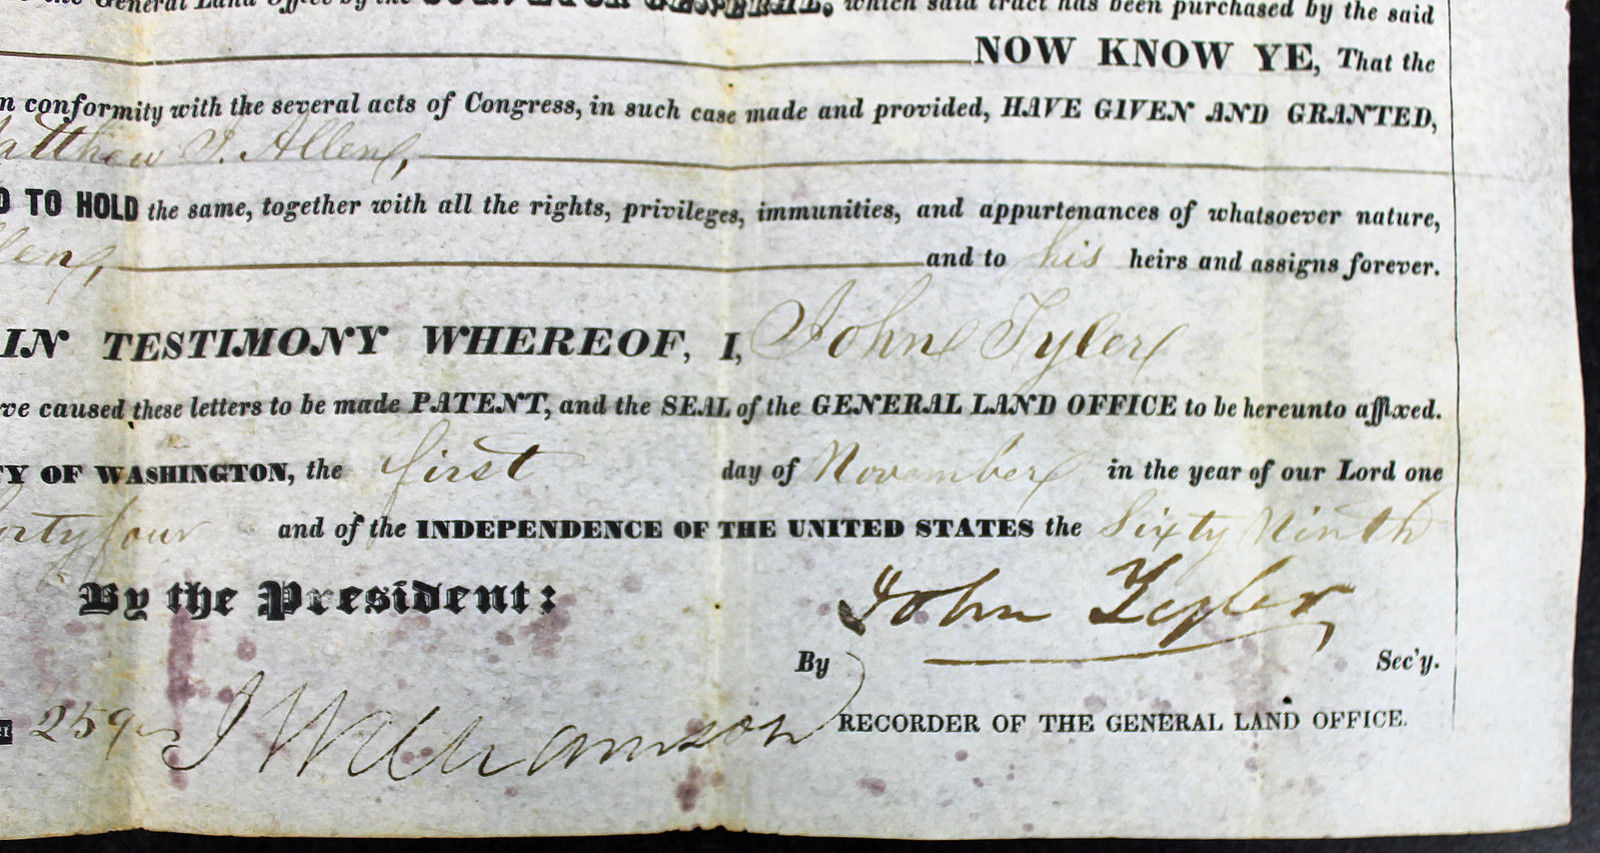 the General Land Office by the SURVEYOR GENERAL, which said tract has been purchased by the said
NOW KNOW YE, That the
n conformity with the several acts of Congress, in such case made and provided, HAVE GIVEN AND GRANTED,
atthew J. Allen,
D TO HOLD the same, together with all the rights, privileges, immunities, and appurtenances of whatsoever nature,
len, and to his heirs and assigns forever.
IN TESTIMONY WHEREOF, I, John Tyler
ve caused these letters to be made PATENT, and the SEAL of the GENERAL LAND OFFICE to be hereunto affixed.
TY OF WASHINGTON, the first day of November in the year of our Lord one
orty four and of the INDEPENDENCE OF THE UNITED STATES the Sixty Ninth
By the President: John Tyler
By Sec'y.
259 J Williamson RECORDER OF THE GENERAL LAND OFFICE.